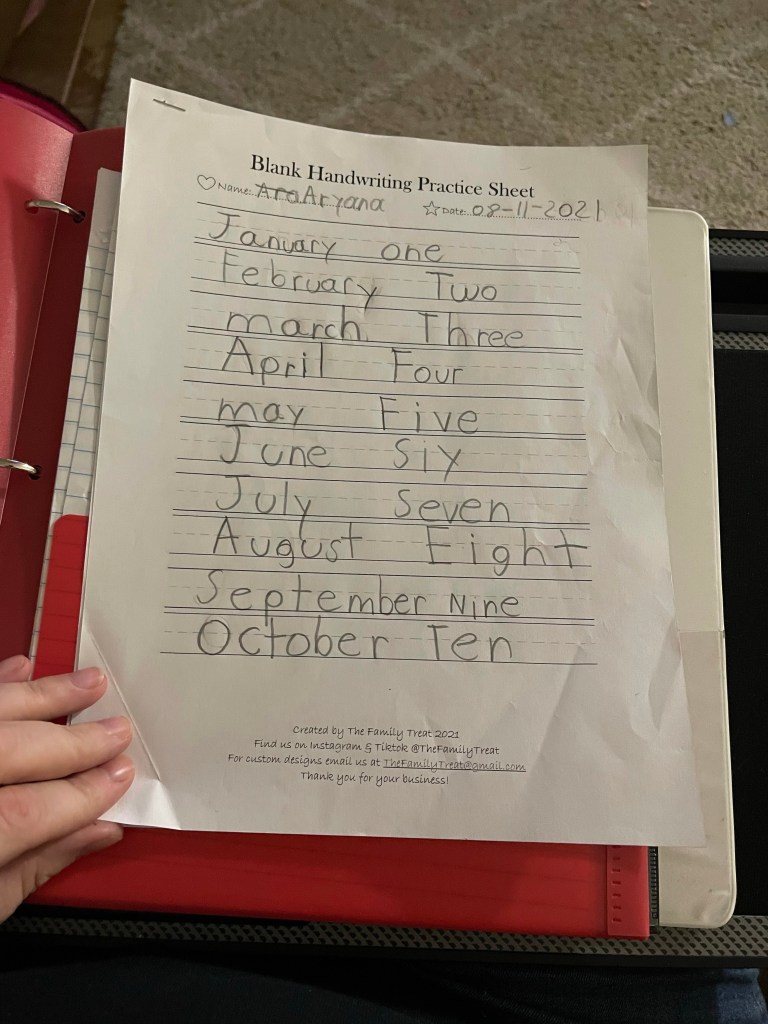 Blank Handwriting Practice Sheet
Name: AraAryana Date: 08-11-2021
January one
February Two
march Three
April Four
may Five
June Siy
July Seven
August Eight
September Nine
October Ten
Created by The Family Treat 2021
Find us on Instagram & Tiktok @TheFamilyTreat
For custom designs email us at TheFamilyTreat@gmail.com
Thank you for your business!